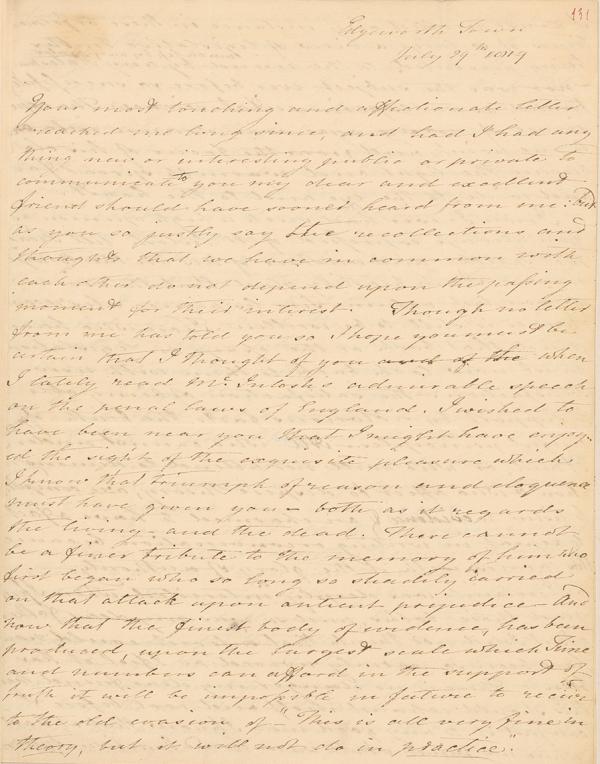 131
Edgeworth Town
July 29th 1819
Your most touching and affectionate letter
reached me long since, and had I had any
thing new or interesting public or private to
communicate to you my dear and excellent
friend should have sooner heard from me: But
as you so justly say the recollections and
thoughts that we have in common with
each other do not depend upon the passing
moment for their interest. Though no letter
from me has told you so I hope you must be
certain that I thought of you and of the when
I lately read Mc.Intosh's admirable speech
on the penal laws of England. I wished to
have been near you that I might have enjoy-
ed the sight of the exquisite pleasure which
I know that triumph of reason and eloquence
must have given you – both as it regards
the living and the dead. There cannot
be a finer tribute to the memory of him who
first began who so long so steadily carried
on that attack upon antient prejudice – And
now that the finest body of evidence, has been
produced, upon the largest scale which Time
and numbers can afford in the support of
truth it will be impossible in future to recur
to the old evasion of "This is all very fine in
theory, but it will not do in practice".